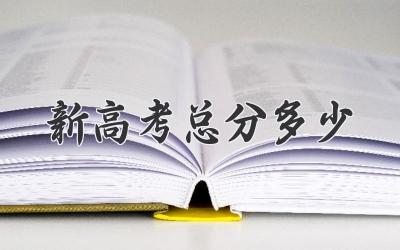 新高考总分多少